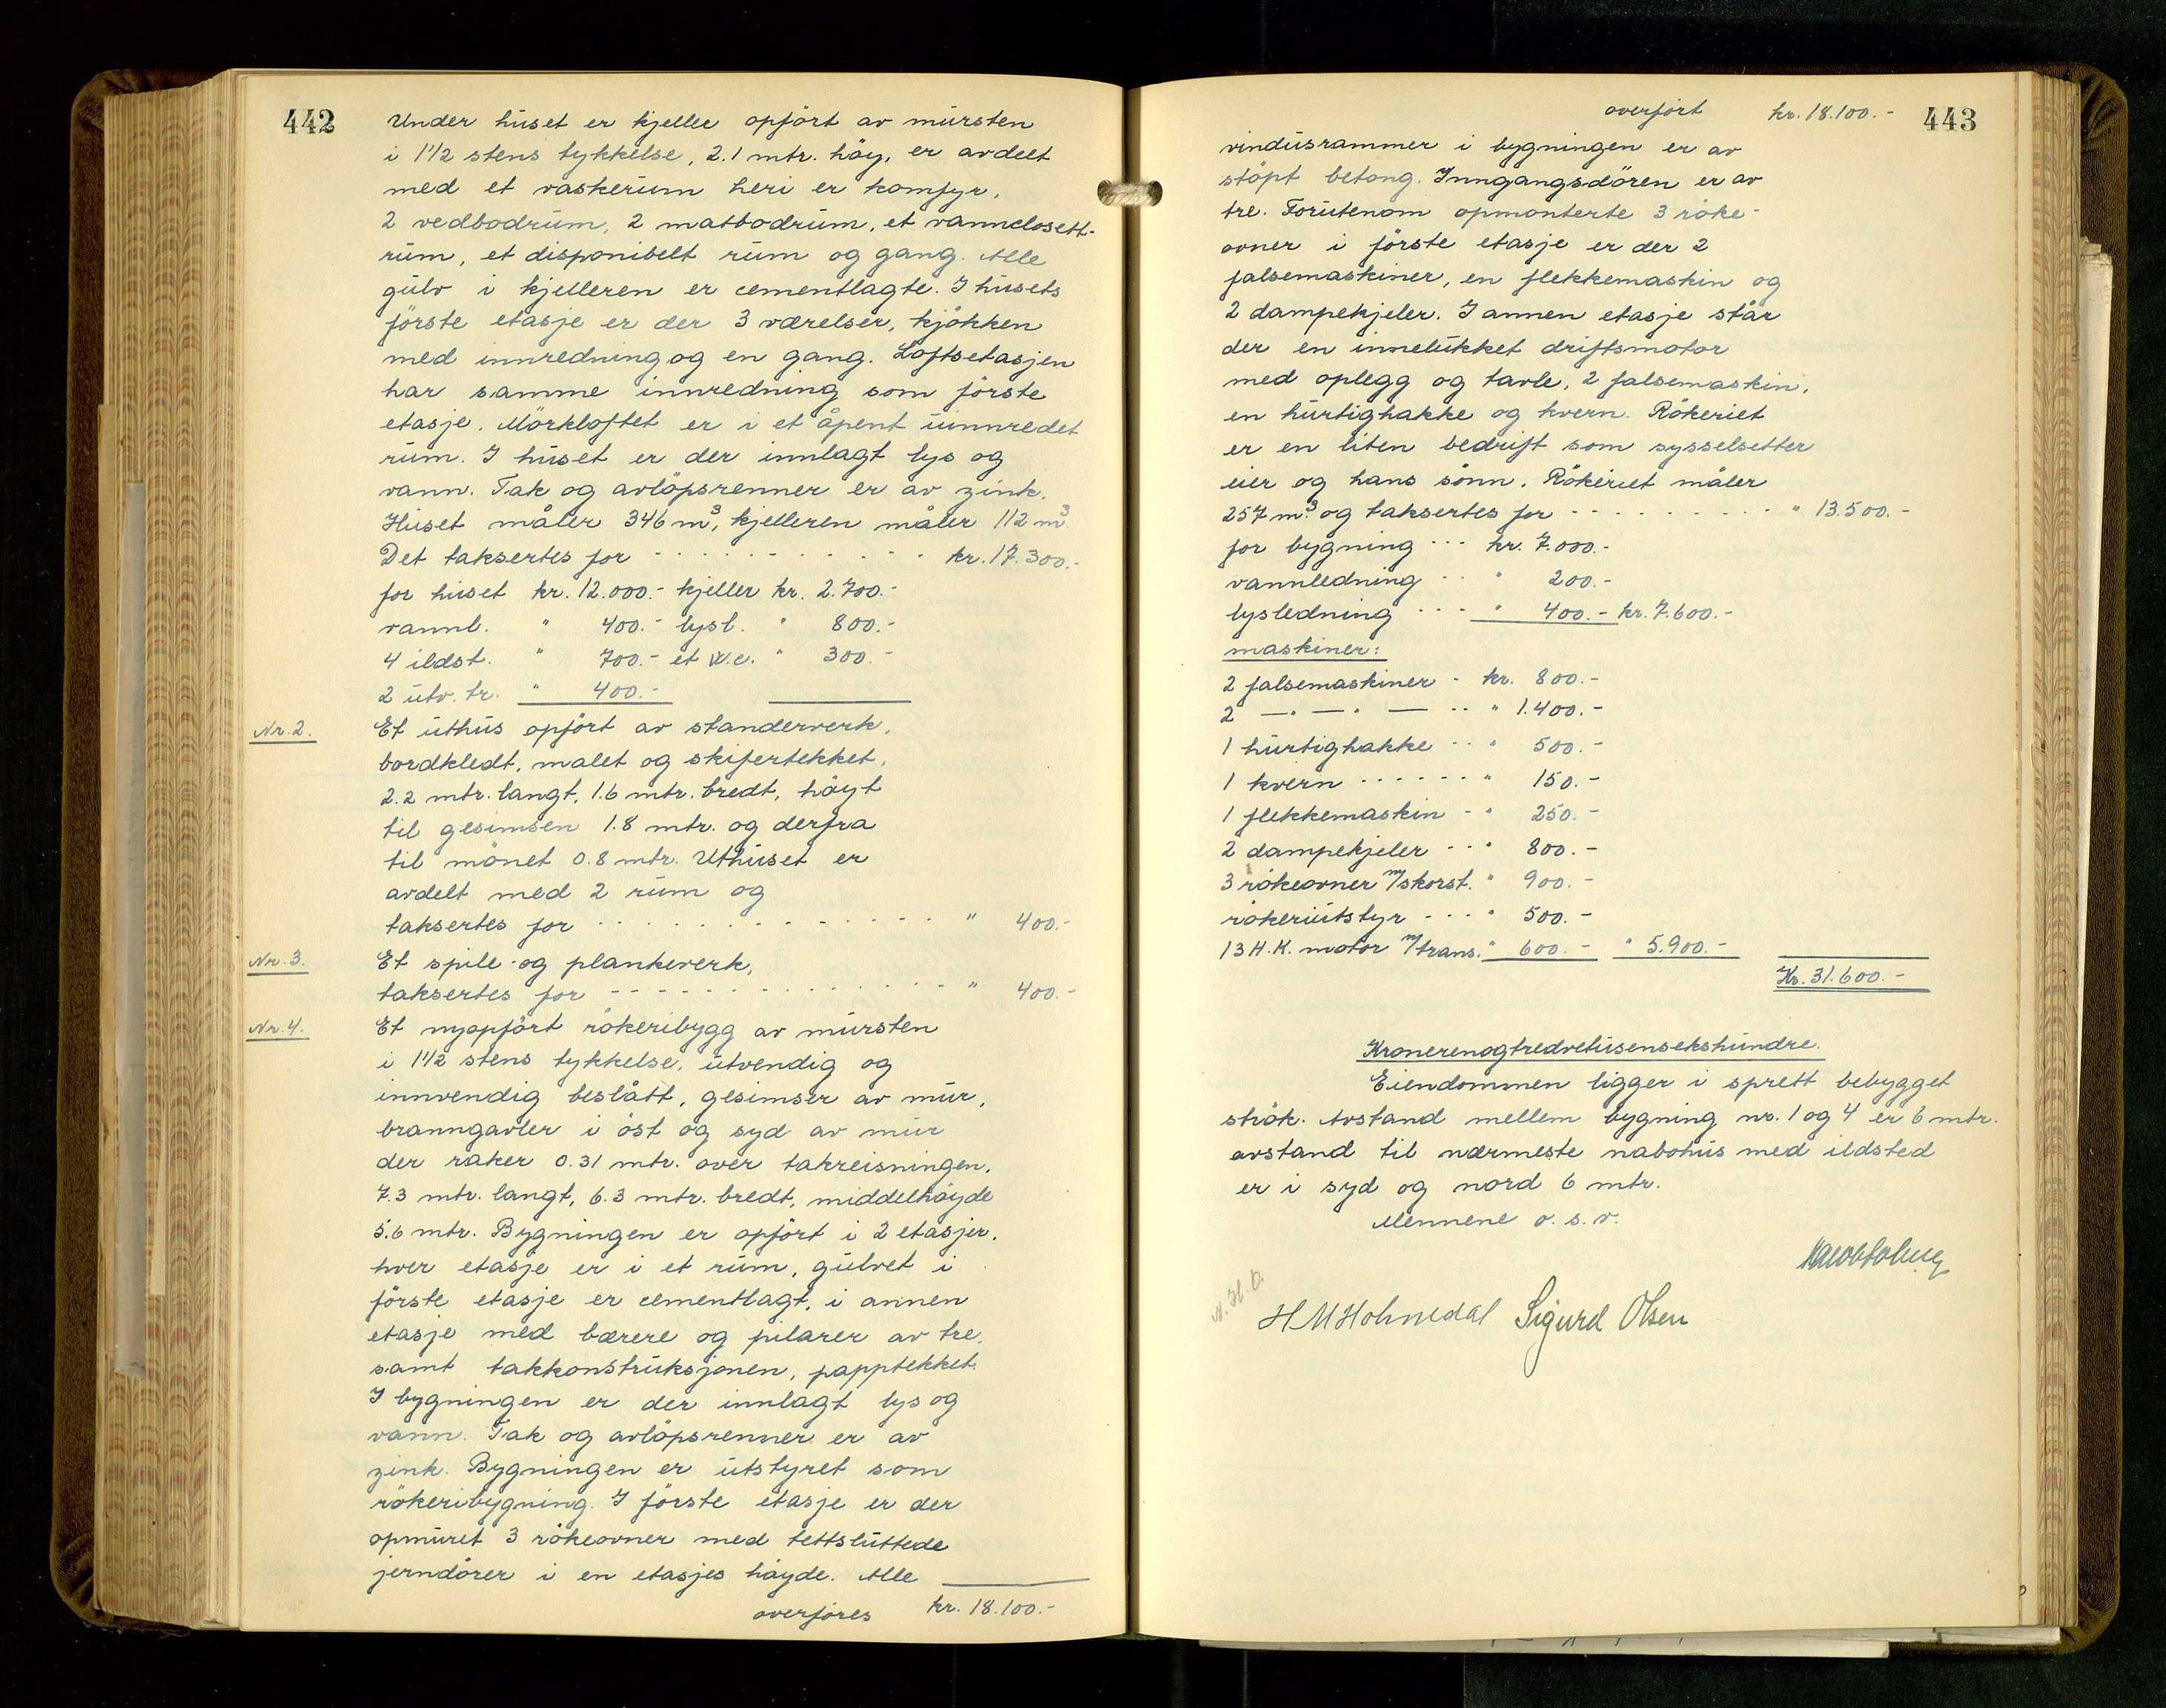 442
Under huset er kjeller opført av mursten
i 1 1/2 stens tykkelse, 2.1 mtr. høy, er avdelt
med et vaskerum heri er komfyr,
2 vedbodrum, 2 matbodrum, et vannclosett-
rum, et disponibelt rum og gang. Alle
gulv i kjelleren er cementlagte. I husets
første etasje er der 3 værelser, kjøkken
med innredning og en gang. Loftsetasjen
har samme innredning som første
etasje. Mørkloftet er i et åpent uinnredet
rum. I huset er der innlagt lys og
vann. Tak og avløpsrenner er av zink.
Huset måler 346 m³, kjelleren måler 112 m³
Det taksertes for - - - - - - - - - kr. 17.300.-
for huset kr. 12.000.- kjeller kr. 2.700.-
vannl. " 400.- lysl. " 800.-
4 ildst. " 700.- et w.c. " 300.-
2 utv. tr. " 400.-
Nr. 2. Et uthus opført av standerverk,
bordkledt, malet og skifertekket,
2.2 mtr. langt, 1.6 mtr. bredt, høyt
til gesimsen 1.8 mtr. og derfra
til mønet 0.8 mtr. Uthuset er
avdelt med 2 rum og
taksertes for - - - - - - - - - " 400.-
Nr. 3. Et spile- og plankeverk,
taksertes for - - - - - - - - - " 400.-
Nr. 4. Et nyopført røkeribygg av mursten
i 1 1/2 stens tykkelse, utvendig og
innvendig beslått, gesimser av mur,
branngavler i øst og syd av mur
der raker 0.31 mtr. over takreisningen,
7.3 mtr. langt, 6.3 mtr. bredt, middelhøyde
5.6 mtr. Bygningen er opført i 2 etasjer,
hver etasje er i et rum, gulvet i
første etasje er cementlagt, i annen
etasje med bærere og pilarer av tre,
samt takkonstruksjonen, papptekket.
I bygningen er der innlagt lys og
vann. Tak og avløpsrenner er av
zink. Bygningen er utstyret som
røkeribygning. I første etasje er der
opmuret 3 røkeovner med tettsluttede
jerndører i en etasjes høyde. Alle
overføres kr. 18.100.-
443
overført kr. 18.100.-
vindusrammer i bygningen er av
støpt betong. Inngangsdøren er av
tre. Forutenom opmonterte 3 røke-
ovner i første etasje er der 2
falsemaskiner, en flekkemaskin og
2 dampekjeler. I annen etasje står
der en innelukket driftsmotor
med oplegg og tavle, 2 falsemaskin,
en hurtighakke og kvern. Røkeriet
er en liten bedrift som sysselsetter
eier og hans sønn. Røkeriet måler
257 m³ og taksertes for - - - - - - - - " 13.500.-
for bygning - - - kr. 7.000.-
vannledning - - " 200.-
lysledning - - - " 400.- kr. 7.600.-
maskiner:
2 falsemaskiner - kr. 800.-
2 — " — " — - - " 1.400.-
1 hurtighakke - - " 500.-
1 kvern - - - - - - " 150.-
1 flekkemaskin - " 250.-
2 dampekjeler - - " 800.-
3 røkeovner m/skorst. " 900.-
røkeriutstyr - - - " 500.-
13 H.K. motor m/trans. " 600.- " 5.900.-
Kr. 31.600.-
Kronerenogtredvetusensekshundre.
Eiendommen ligger i sprett bebygget
strøk. Avstand mellem bygning nr. 1 og 4 er 6 mtr.
avstand til nærmeste nabohus med ildsted
er i syd og nord 6 mtr.
Mennene o. s. v.
H M Holmedal Sigurd Olsen